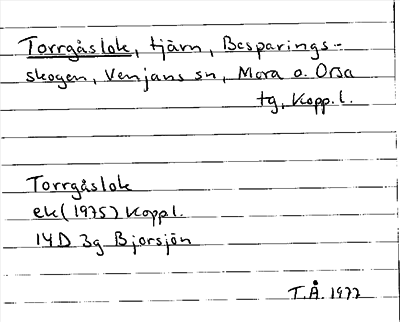 Torrgåslok, tjärn, Besparings-
skogen, Venjans sn, Mora o. Orsa
tg, Kopp.l.
Torrgåslok
ek (1975) Koppl.
14D 3g Bjorsjön
T.Å. 1977